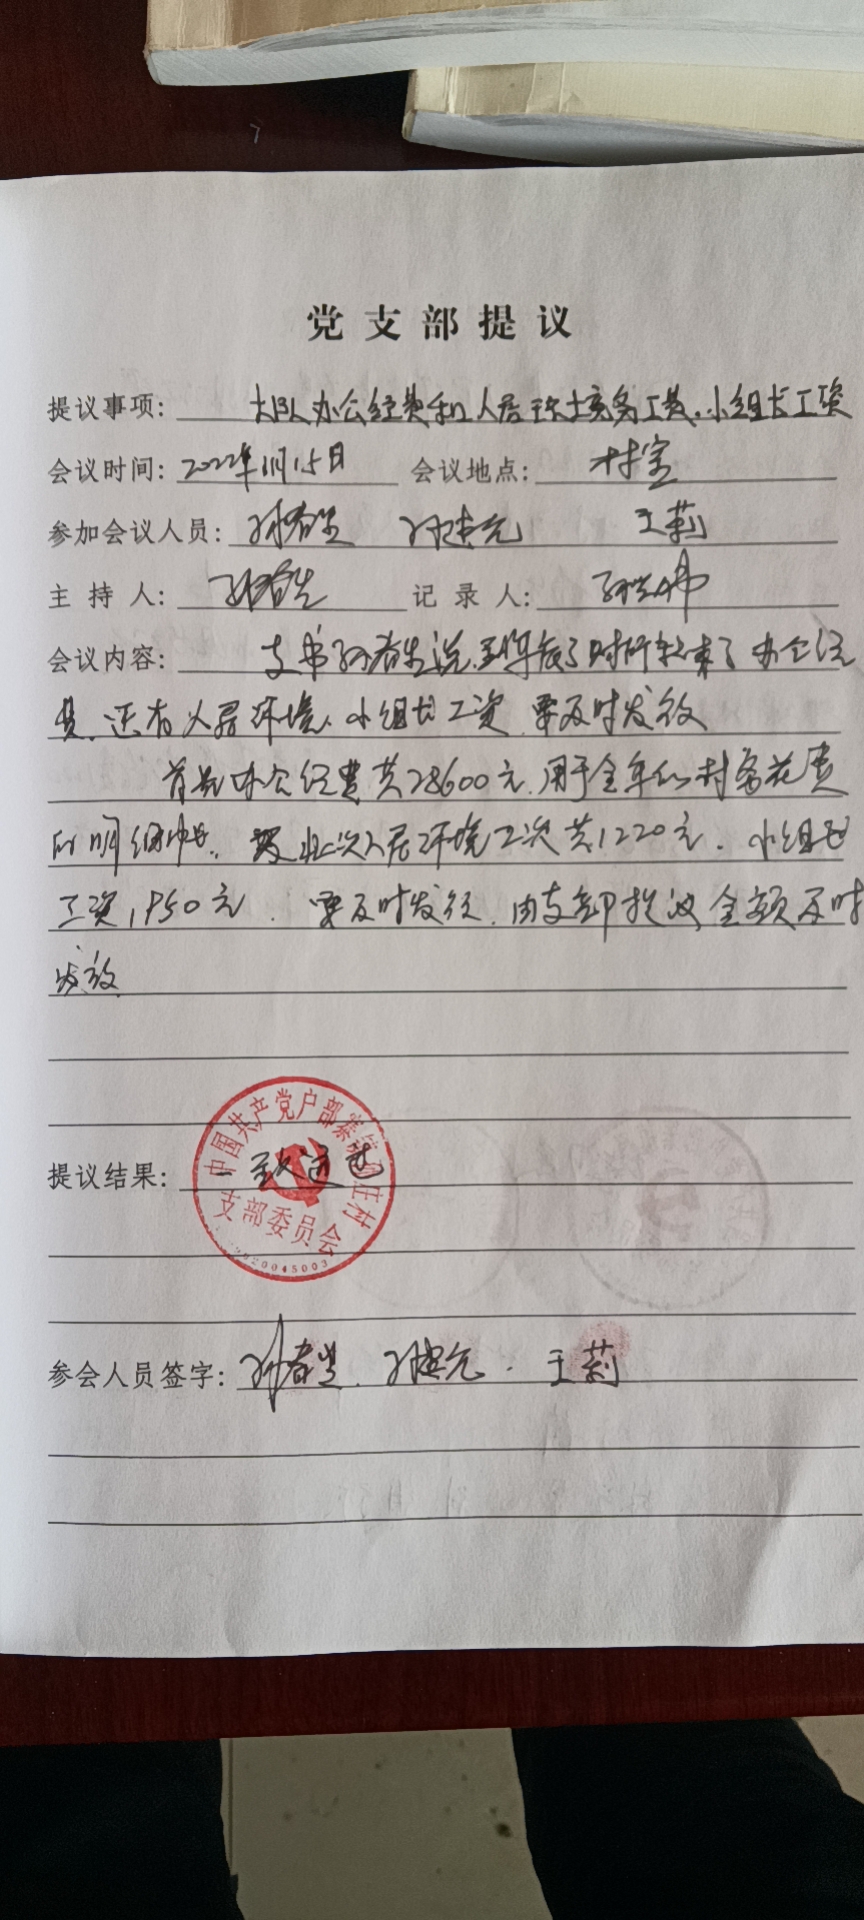 党支部提议
提议事项: 大队办公经费和人居环境务工费、小组长工资
会议时间: 2022年11月15日 会议地点: 村室
参加会议人员: 孙春生 孙建元 王莉
主持人: 孙春生 记录人: 孙
会议内容: 支书孙春生说, 到年底了财所拨来了办公经
费, 还有人居环境、小组长工资, 要及时发放
首先办公经费共28600元, 用于全年的村务花费
的明细, 此次人居环境工资共1220元. 小组长
工资1850元. 要及时发放, 由支部提议金额及时
发放.
中国共产党户部寨镇庄村
支部委员会
20045003
提议结果: 一致通过
参会人员签字: 孙春生. 孙建元. 王莉